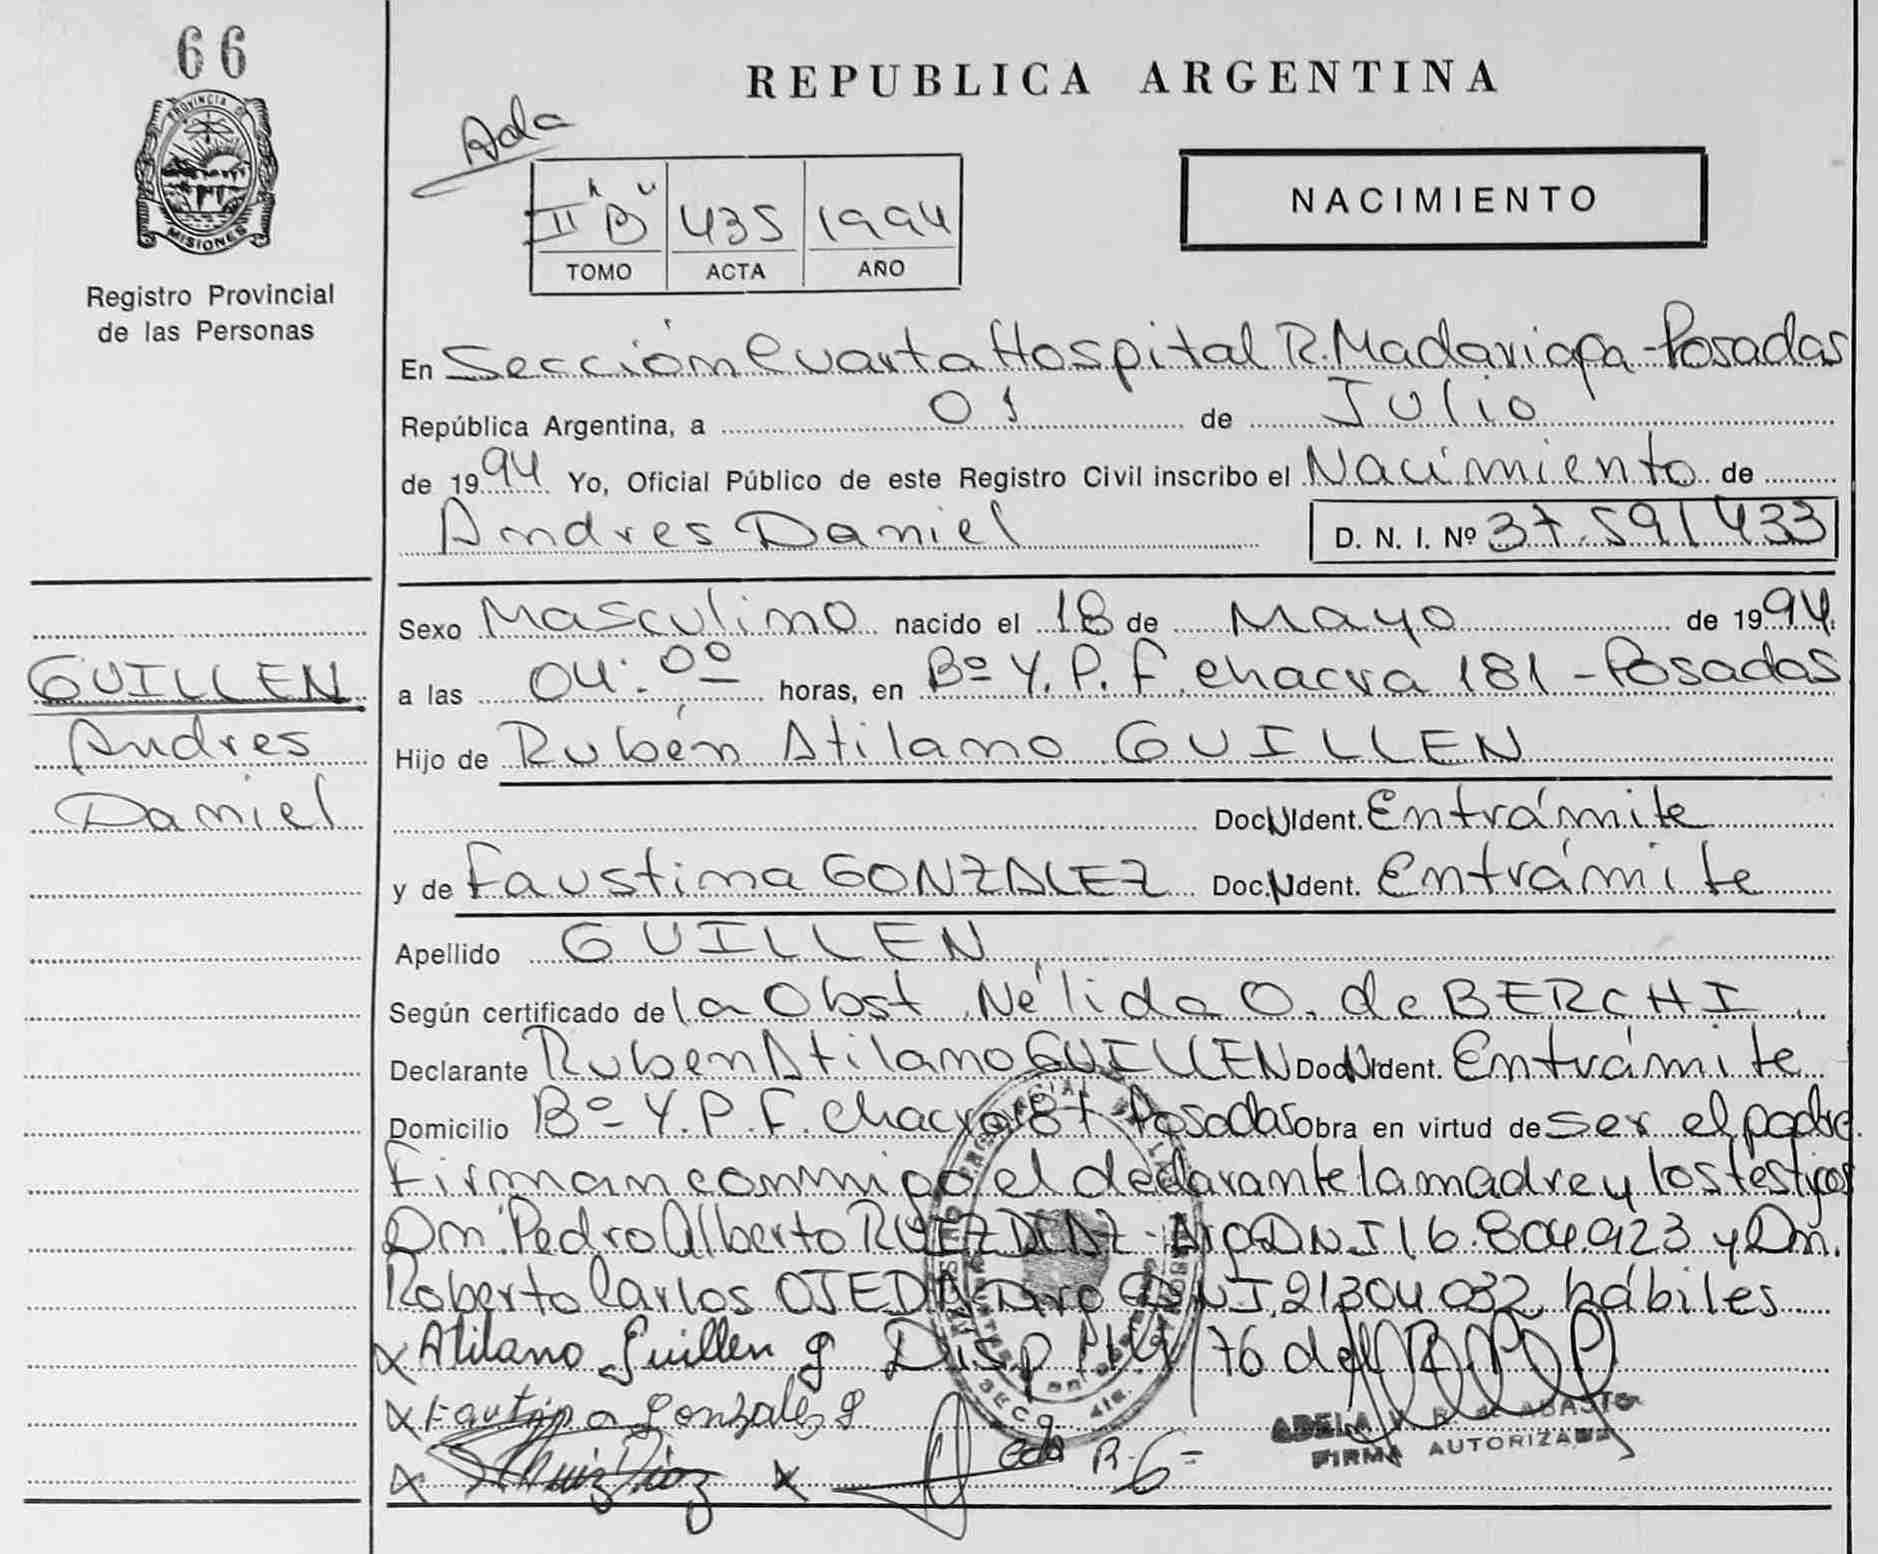 66
PROVINCIA DE
MISIONES
Registro Provincial
de las Personas
REPUBLICA ARGENTINA
Ada
NACIMIENTO
II "B" 435 1994
TOMO ACTA AÑO
En Sección Cuarta Hospital R. Madariaga - Posadas
República Argentina, a 01 de Julio
de 1994 Yo, Oficial Público de este Registro Civil inscribo el Nacimiento de
Andres Daniel D. N. I. Nº 37.591433
Sexo Masculino nacido el 18 de Mayo de 1994.
GUILLEN
Andres
Daniel
a las 04:00 horas, en Bº Y.P.F. chacra 181 - Posadas
Hijo de Rubén Atilano GUILLEN
Doc. Ident. Entrámite
y de Faustina GONZALEZ Doc. Ident. Entrámite
Apellido GUILLEN
Según certificado de la Obst. Nélida O. de BERCHI.
Declarante Ruben Atilano GUILLEN Doc. Ident. Entrámite
Domicilio Bº Y.P.F. chacra 181 Posadas obra en virtud de ser el padre.
Firman conmigo el declarante la madre y los testigos
Dn. Pedro Alberto RUIZ DIAZ - Arg. DNI 16.804.923 y Dn.
Roberto Carlos OJEDA DNI 21304032 hábiles
x Atilano Guillen g Disp 119/76 del
x Fautina Gonzales g
x Ruiz Diaz x
FIRMA AUTORIZADA